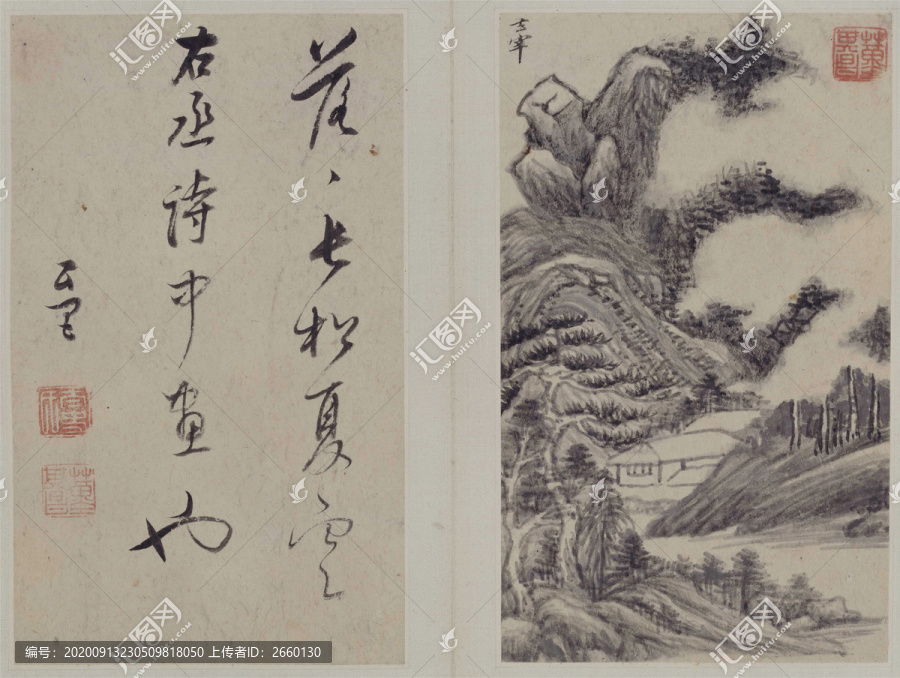 落〻長松夏寒
右丞詩中畫也
玄宰
汇图网
www.huitu.com
编号：20200913230509818050 上传者ID：2660130